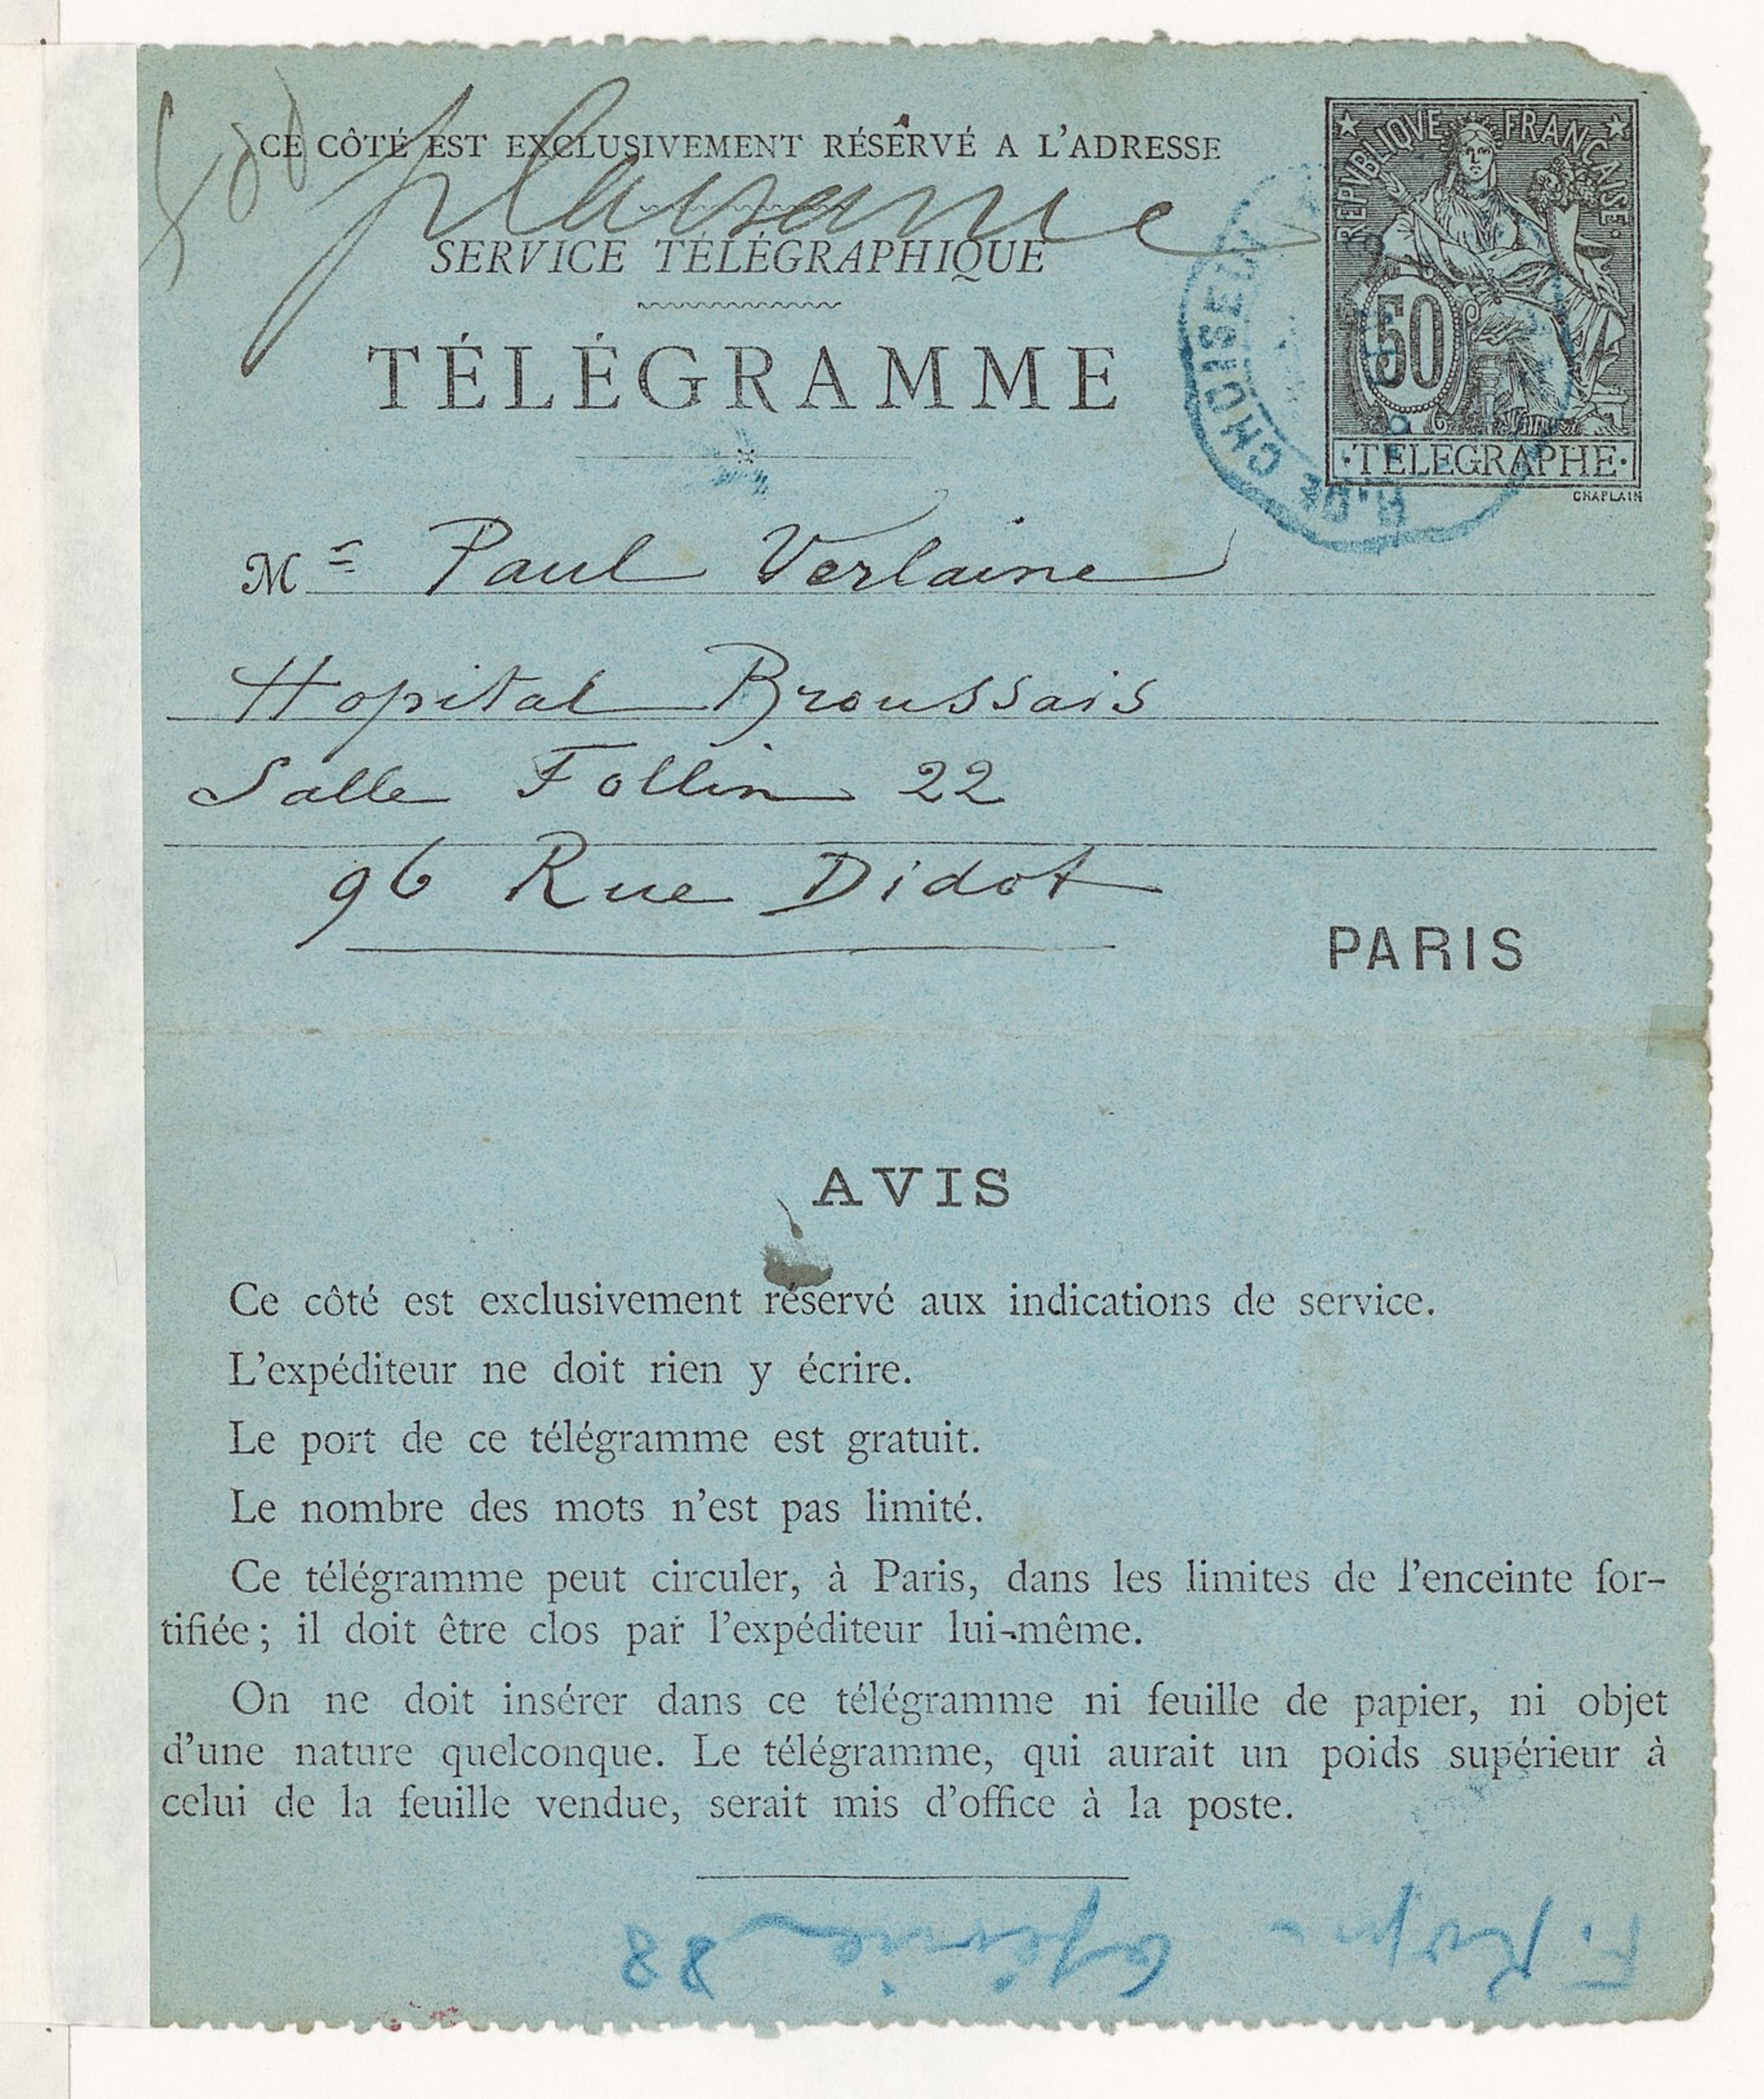 CE CÔTÉ EST EXCLUSIVEMENT RÉSERVÉ A L'ADRESSE
plaisance
SERVICE TÉLÉGRAPHIQUE
TÉLÉGRAMME
REPVBLIQVE FRANCAISE
50
TELEGRAPHE
CHAPLAIN
R. DE CHOISEUL
Mr Paul Verlaine
Hopital Broussais
Salle Follin 22
96 Rue Didot
PARIS
AVIS
Ce côté est exclusivement réservé aux indications de service.
L'expéditeur ne doit rien y écrire.
Le port de ce télégramme est gratuit.
Le nombre des mots n'est pas limité.
Ce télégramme peut circuler, à Paris, dans les limites de l'enceinte for-
tifiée; il doit être clos par l'expéditeur lui-même.
On ne doit insérer dans ce télégramme ni feuille de papier, ni objet
d'une nature quelconque. Le télégramme, qui aurait un poids supérieur à
celui de la feuille vendue, serait mis d'office à la poste.
F. Rops 6 février 88